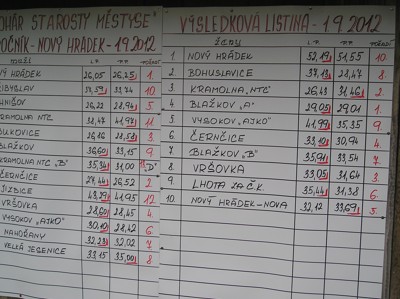 OHÁR STAROSTY MĚSTYSE"
OČNÍK - NOVÝ HRÁDEK - 1.9.2012
MUŽI L.P. P.P.
VÝ HRÁDEK 26,05 26,25 1.
IBYSLAV 33,59 33,74 10
HNIŠOV 26,22 28,94 5
KRAMOLNA NTC 38,47 41,97 11
UKOVICE 26,16 28,58 3
BLAŽKOV 36,60 33,15 9
KRAMOLNA NTC „B" 35,34 31,00 „D"
ČERNČICE 27,44 26,52 2
JIZBICE 43,29 41,95 12
VRŠOVKA 28,60 28,45 4
VYSOKOV „AJKO" 30,10 28,42 6
NAHOŘANY 32,23 32,02 7
VELKÁ JESENICE 33,15 35,00 8
VÝSLEDKOVÁ LISTINA - 1.9.2012
ŽENY L.P. P.P. POŘADÍ
1 NOVÝ HRÁDEK 52,19 51,55 10
2 BOHUSLAVICE 37,13 28,47 8
3 KRAMOLNA „NTC" 26,43 31,46 2
4 BLAŽKOV „A" 29,05 29,01 1.
5 VYSOKOV „AJKO" 41,99 35,35 9
6 ČERNČICE 33,10 30,94 4.
7 BLAŽKOV „B" 35,91 33,54 7
8 VRŠOVKA 33,05 31,64 3.
9 LHOTA ZA Č.K. 35,44 31,38 6
10 NOVÝ HRÁDEK - NOVA 32,12 33,69 5.